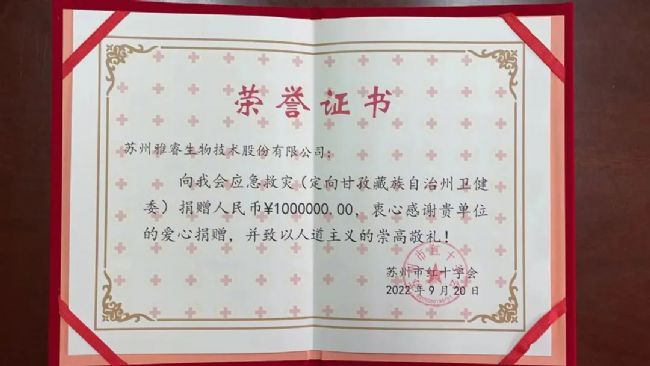 荣誉证书
苏州雅睿生物技术股份有限公司:
向我会应急救灾(定向甘孜藏族自治州卫健
委)捐赠人民币¥1000000.00,衷心感谢贵单位
的爱心捐赠,并致以人道主义的崇高敬礼!
苏州市红十字会
2022年9月20日